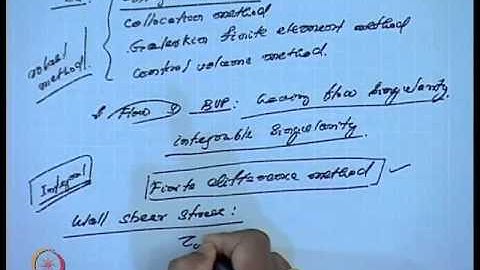 collocation method
Galerkin finite element method
robust method.
control volume method.
Flow BVP: having flow singularity.
integrable singularity.
Integral
Finite difference method
Wall shear stress: